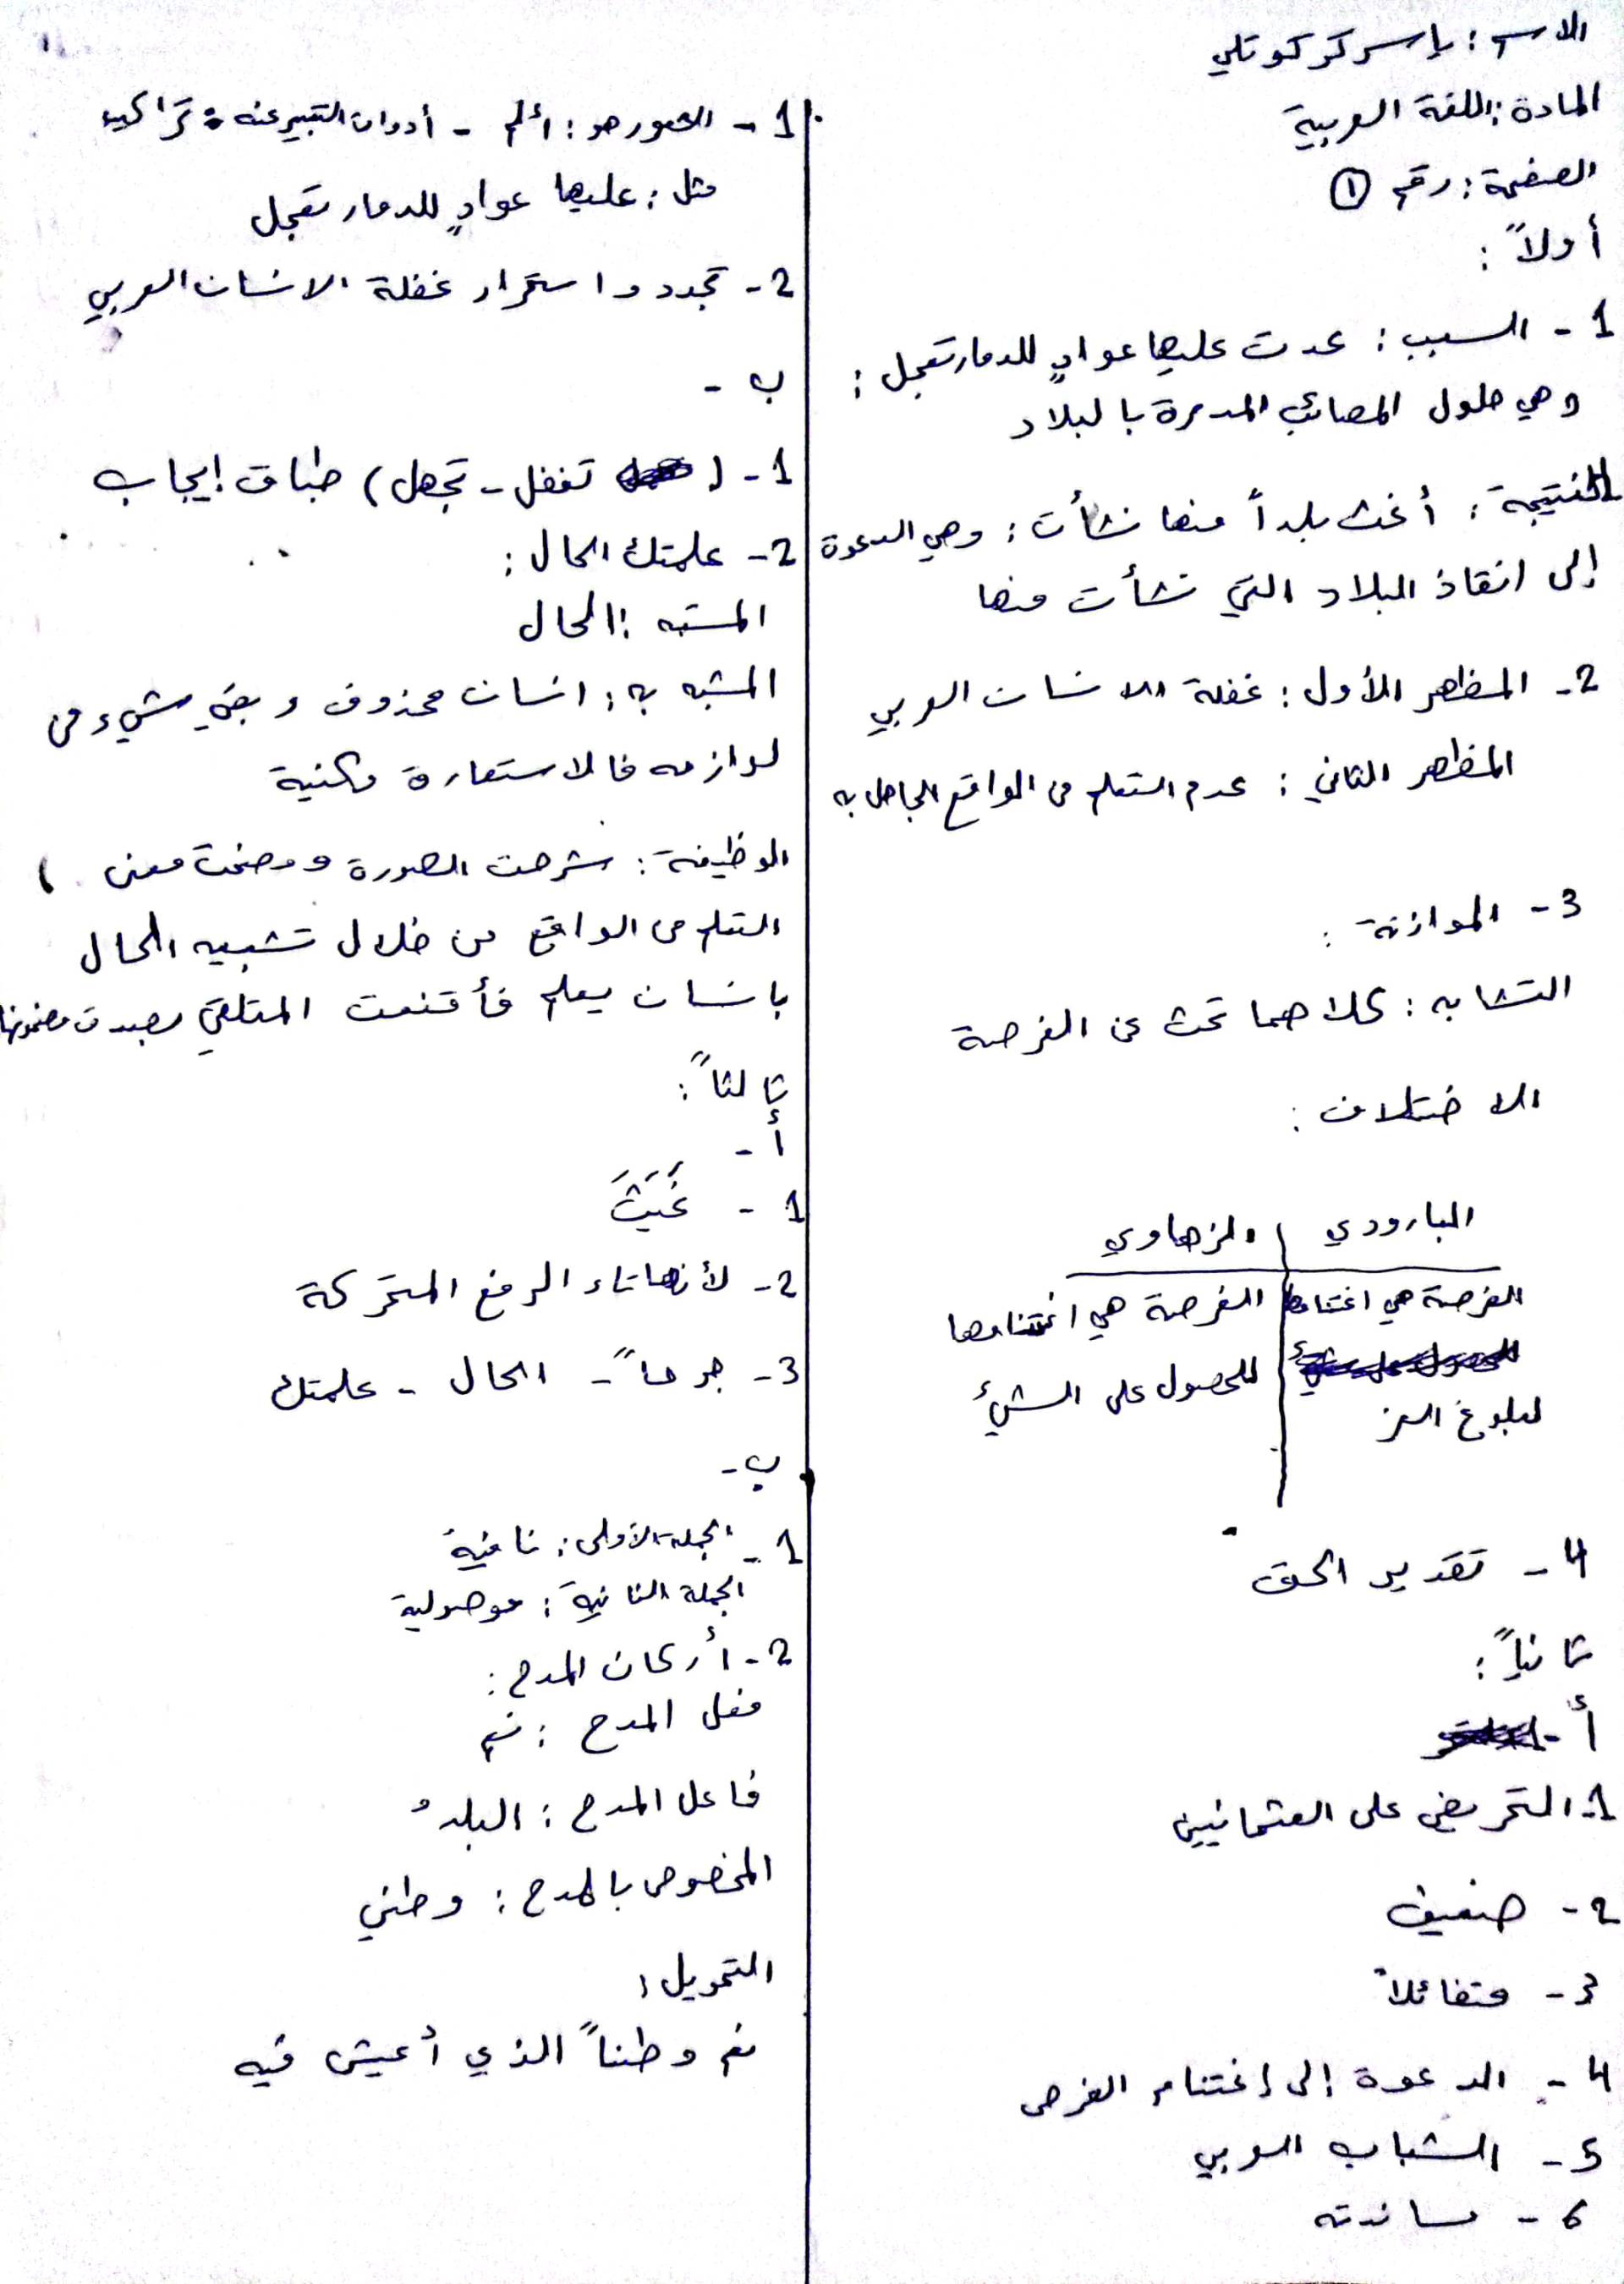 الاسم : ياسر كركوتلي
المادة : اللغة العربية
الصفحة : رقم ①
أولاً :
1 - السبب : عدت عليها عوادٍ للدمار تعجل :
وهي حلول المصائب المدمرة بالبلاد
النتيجة : أغث بلداً منها نشأت : وهي الدعوة
إلى انقاذ البلاد التي نشأت منها
2 - المظهر الأول : غفلة الانسان العربي
المظهر الثاني : عدم التعلم من الواقع الجاهل به
3 - الموازنة :
التشابه : كلاهما تحدث عن الفرصة
الاختلاف :
البارودي | الزهاوي
الفرصة هي اغتنامها | الفرصة هي اغتنامها
لبلوغ العز | للحصول على الشيء
4 - تقدير الحق
ثانياً :
أ -
1 - التحريض على العثمانيين
2 - ضعيف
3 - متفائلاً
4 - الدعوة إلى إغتنام الفرص
5 - الشباب العربي
6 - مساندته
1 - الشعور هو : ألم - أدوات التعبير عنه : تراكيب
مثل : عليها عوادٍ للدمار تعجل
2 - تجدد واستمرار غفلة الانسان العربي
ب -
1 - ( تغفل - تجهل ) طباق إيجاب
2 - علمتك الحال :
المشبه : الحال
المشبه به : انسان محذوف وبقي شيء من
لوازمه فالاستعارة مكنية
الوظيفة : شرحت الصورة ووضحت معنى
التعلم من الواقع من خلال تشبيه الحال
بانسان يعلم فأقنعت المتلقي بصدق مضمونها
ثالثاً :
أ -
1 - غَيَثَ
2 - لأنها تاء الرفع المتحركة
3 - جرحاً - الحال - علمتك
ب -
1 - الجملة الأولى : نافية
الجملة الثانية : موصولية
2 - أركان المدح :
فعل المدح : نعم
فاعل المدح : البلدُ
المخصوص بالمدح : وطني
التحويل :
نعم وطناً الذي أعيش فيه